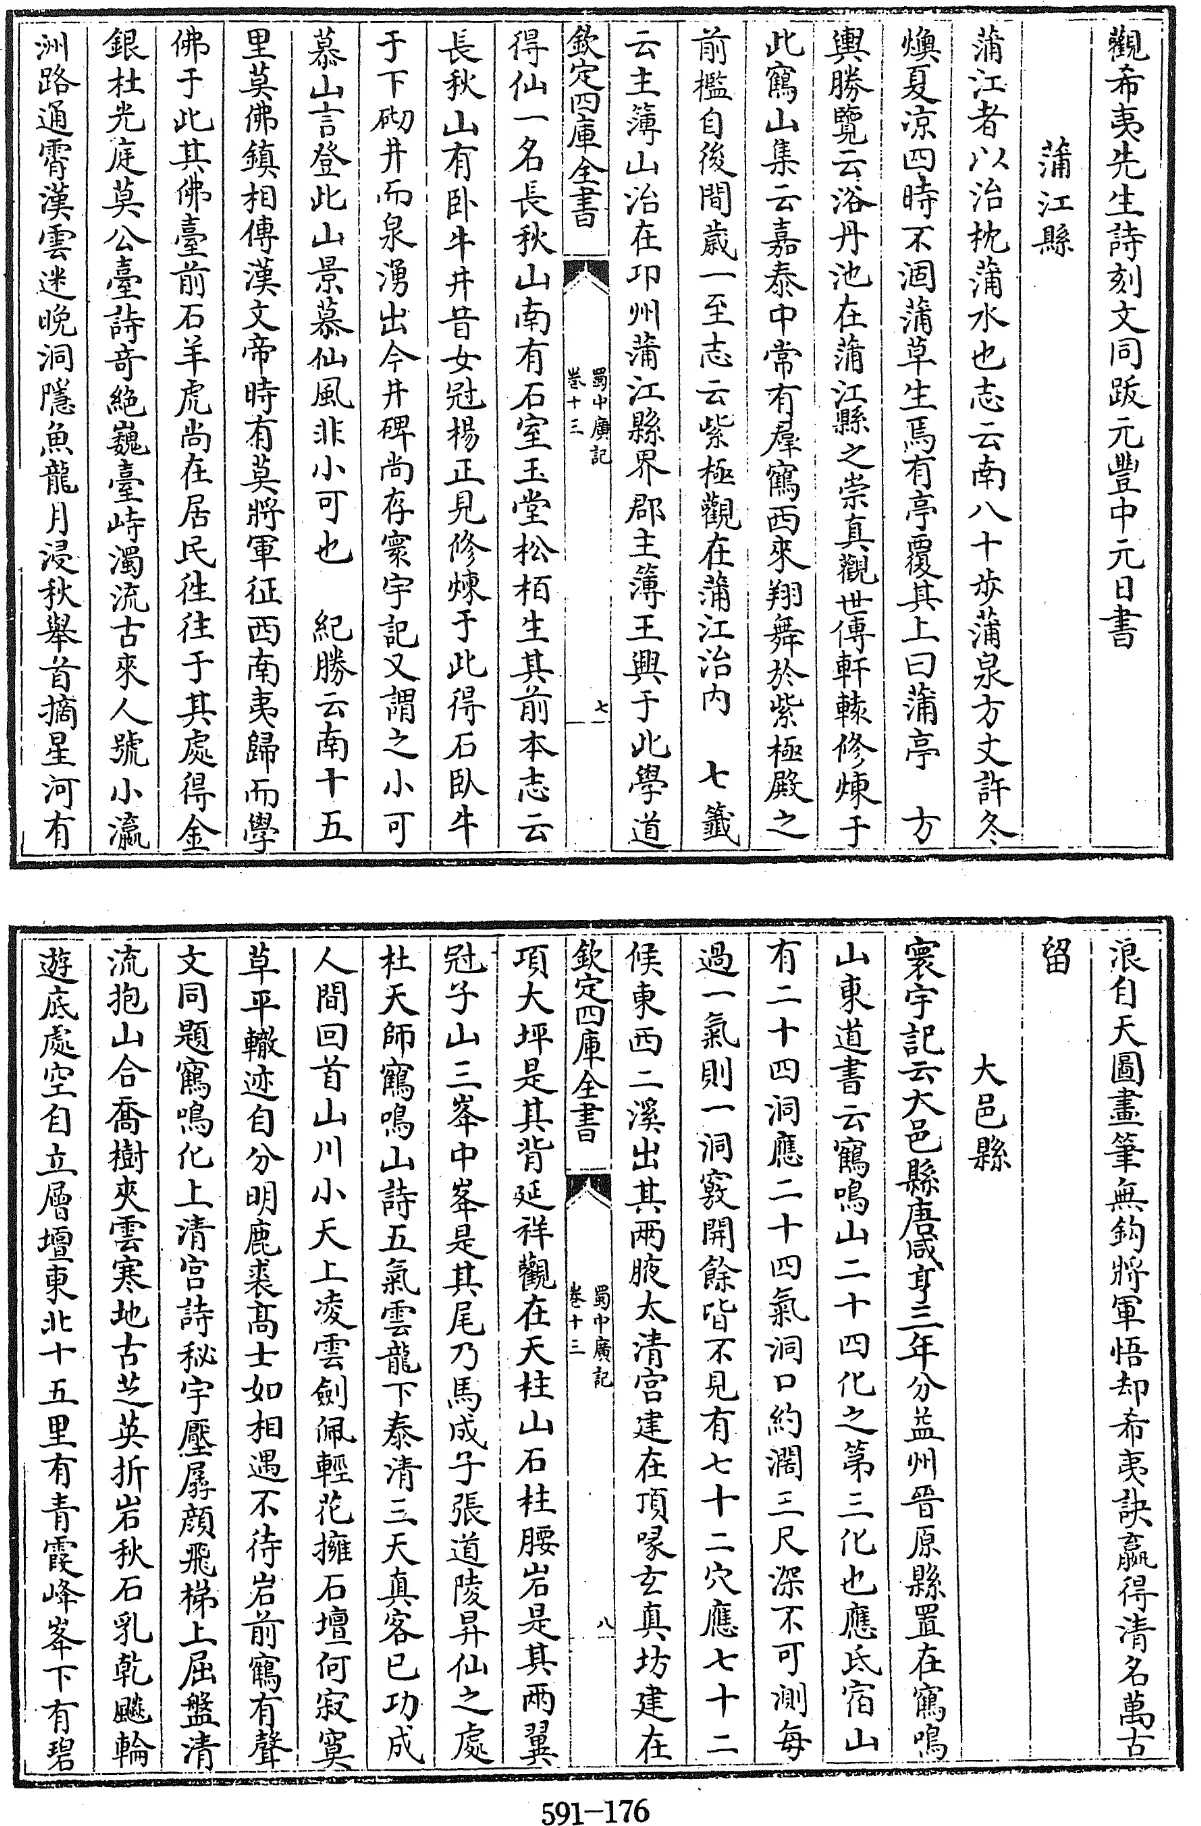 觀希夷先生詩刻文同跋元豐中元日書
蒲江縣
蒲江者以治枕蒲水也志云南八十歩蒲泉方丈許冬
煥夏凉四時不涸蒲草生焉有亭覆其上曰蒲亭　方
輿勝覽云浴丹池在蒲江縣之崇真觀世傳軒轅修煉于
此鶴山集云嘉泰中常有羣鶴西來翔舞於紫極殿之
前檻自後間歲一至志云紫極觀在蒲江治内　七籤
云主簿山治在邛州蒲江縣界郡主簿王興于此學道
欽定四庫全書
蜀中廣記
卷十三
七
得仙一名長秋山南有石室玉堂松栢生其前本志云
長秋山有卧牛井昔女冠楊正見修煉于此得石臥牛
于下砌井而泉湧出今井碑尚存寰宇記又謂之小可
慕山言登此山景慕仙風非小可也　紀勝云南十五
里莫佛鎮相傳漢文帝時有莫將軍征西南夷歸而學
佛于此其佛臺前石羊虎尚在居民徃徃于其處得金
銀杜光庭莫公臺詩奇絶巍臺峙濁流古來人號小瀛
洲路通霄漢雲迷晩洞隱魚龍月浸秋舉首摘星河有
浪自天圖畫筆無鈎將軍悟却希夷訣贏得清名萬古
留
大邑縣
寰宇記云大邑縣唐咸亨三年分益州晉原縣置在鶴鳴
山東道書云鶴鳴山二十四化之第三化也應氐宿山
有二十四洞應二十四氣洞口約濶三尺深不可測每
過一氣則一洞竅開餘皆不見有七十二穴應七十二
候東西二溪出其兩腋太清宫建在頂喙玄真坊建在
欽定四庫全書
蜀中廣記
卷十三
八
項大坪是其背延祥觀在天柱山石柱腰岩是其兩翼
冠子山三峯中峯是其尾乃馬成子張道陵昇仙之處
杜天師鶴鳴山詩五氣雲龍下泰清三天真客已功成
人間回首山川小天上凌雲劍佩輕花擁石壇何寂寞
草平轍迹自分明鹿裘髙士如相遇不待岩前鶴有聲
文同題鶴鳴化上清宫詩秘宇壓孱顔飛梯上屈盤清
流抱山合喬樹夾雲寒地古芝英折岩秋石乳乾飈輪
遊底處空自立層壇東北十五里有青霞峰峯下有碧
591-176